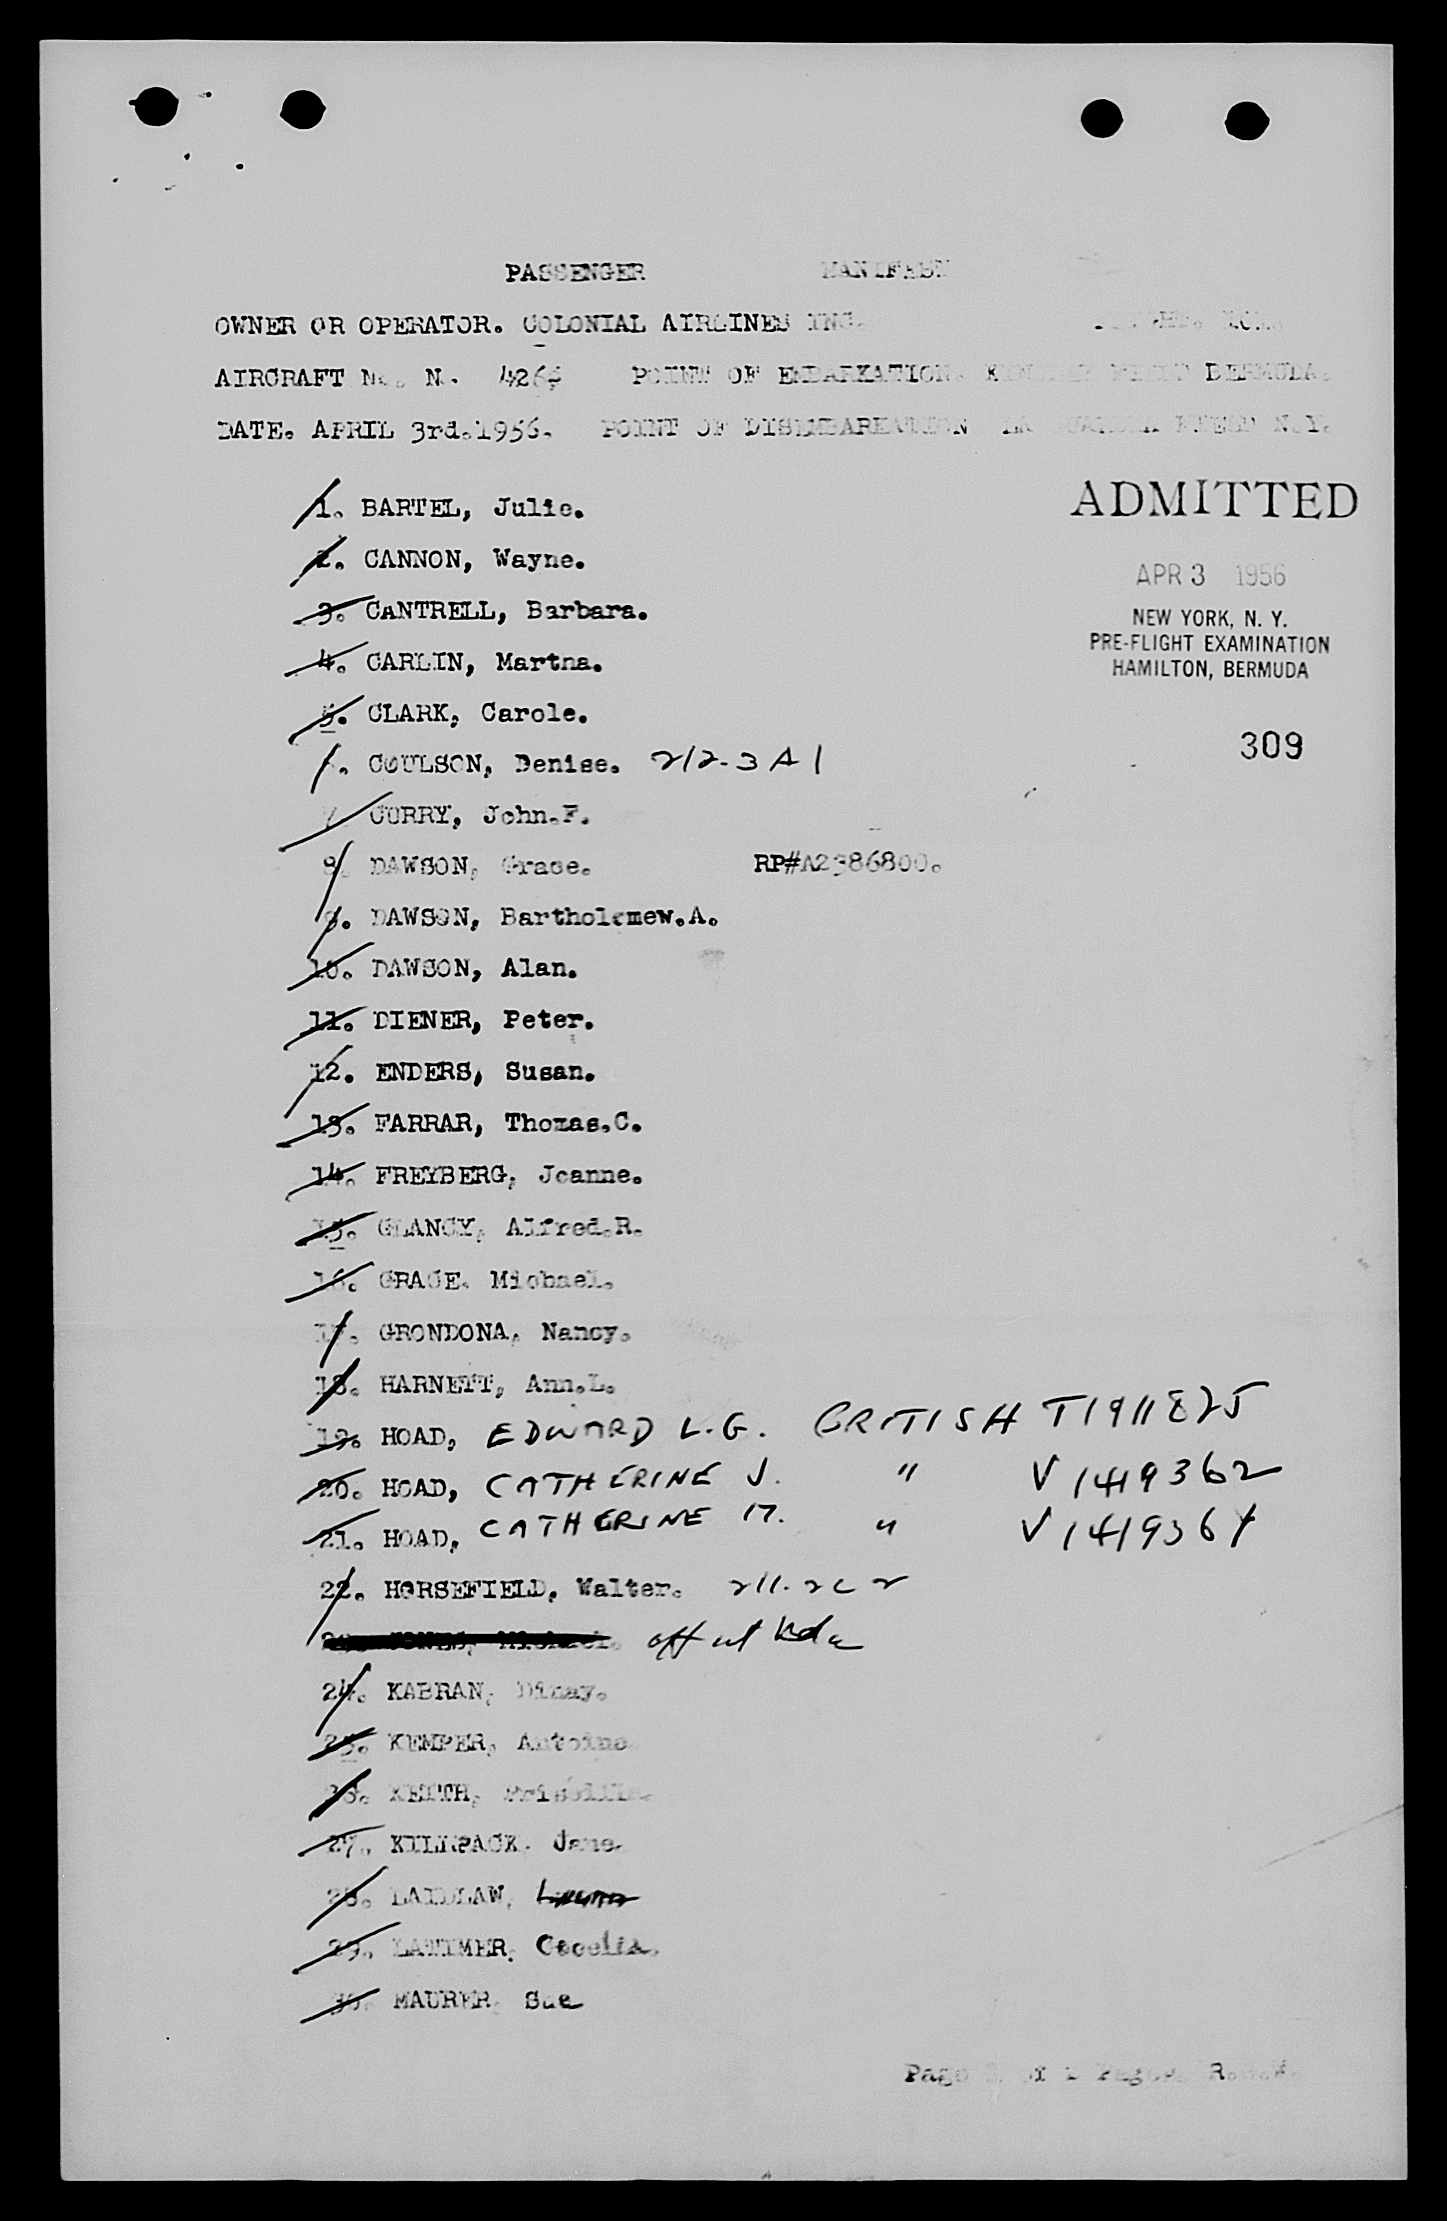 PASSENGER MANIFEST
OWNER OR OPERATOR. COLONIAL AIRLINES INC.
AIRCRAFT No. N. POINT OF EMBARKATION. BERMUDA.
DATE. APRIL 3rd.1956. POINT OF DISEMBARKATION N.Y.
ADMITTED
APR 3 1956
NEW YORK, N. Y.
PRE-FLIGHT EXAMINATION
HAMILTON, BERMUDA
309
1. BARTEL, Julie.
2. CANNON, Wayne.
3. CANTRELL, Barbara.
4. CARLIN, Martha.
5. CLARK, Carole.
6. COULSON, Denise. 212-3A1
7. CURRY, John.F.
8. DAWSON, Grace. RP#A2386800.
9. DAWSON, Bartholomew.A.
10. DAWSON, Alan.
11. DIENER, Peter.
12. ENDERS, Susan.
13. FARRAR, Thomas.C.
14. FREYBERG, Joanne.
15. GLANCY, Alfred.R.
16. GRACE. Michael.
17. GRONDONA, Nancy.
18. HARNETT, Ann.L.
19. HOAD, EDWARD L.G. BRITISH T1911825
20. HOAD, CATHERINE J. " V 1419362
21. HOAD, CATHERINE M. "
22. HORSEFIELD, Walter. 211.2C2
23. JONES, Michael. off at
24. KABRAN,
25. KEMPER,
26. KEITH, Priscilla.
27. KILLPACK. Jane.
28. LAIDLAW,
29. LATIMER, Cecelia.
30. MAURER, Sue
Page